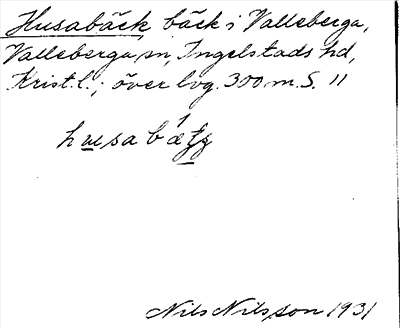 Husabäck, bäck i Valleberga,
Valleberga sn, Ingelstads hd,
Krist. l.; över lvg. 300 m. S. 11
Nils Nilsson 1931